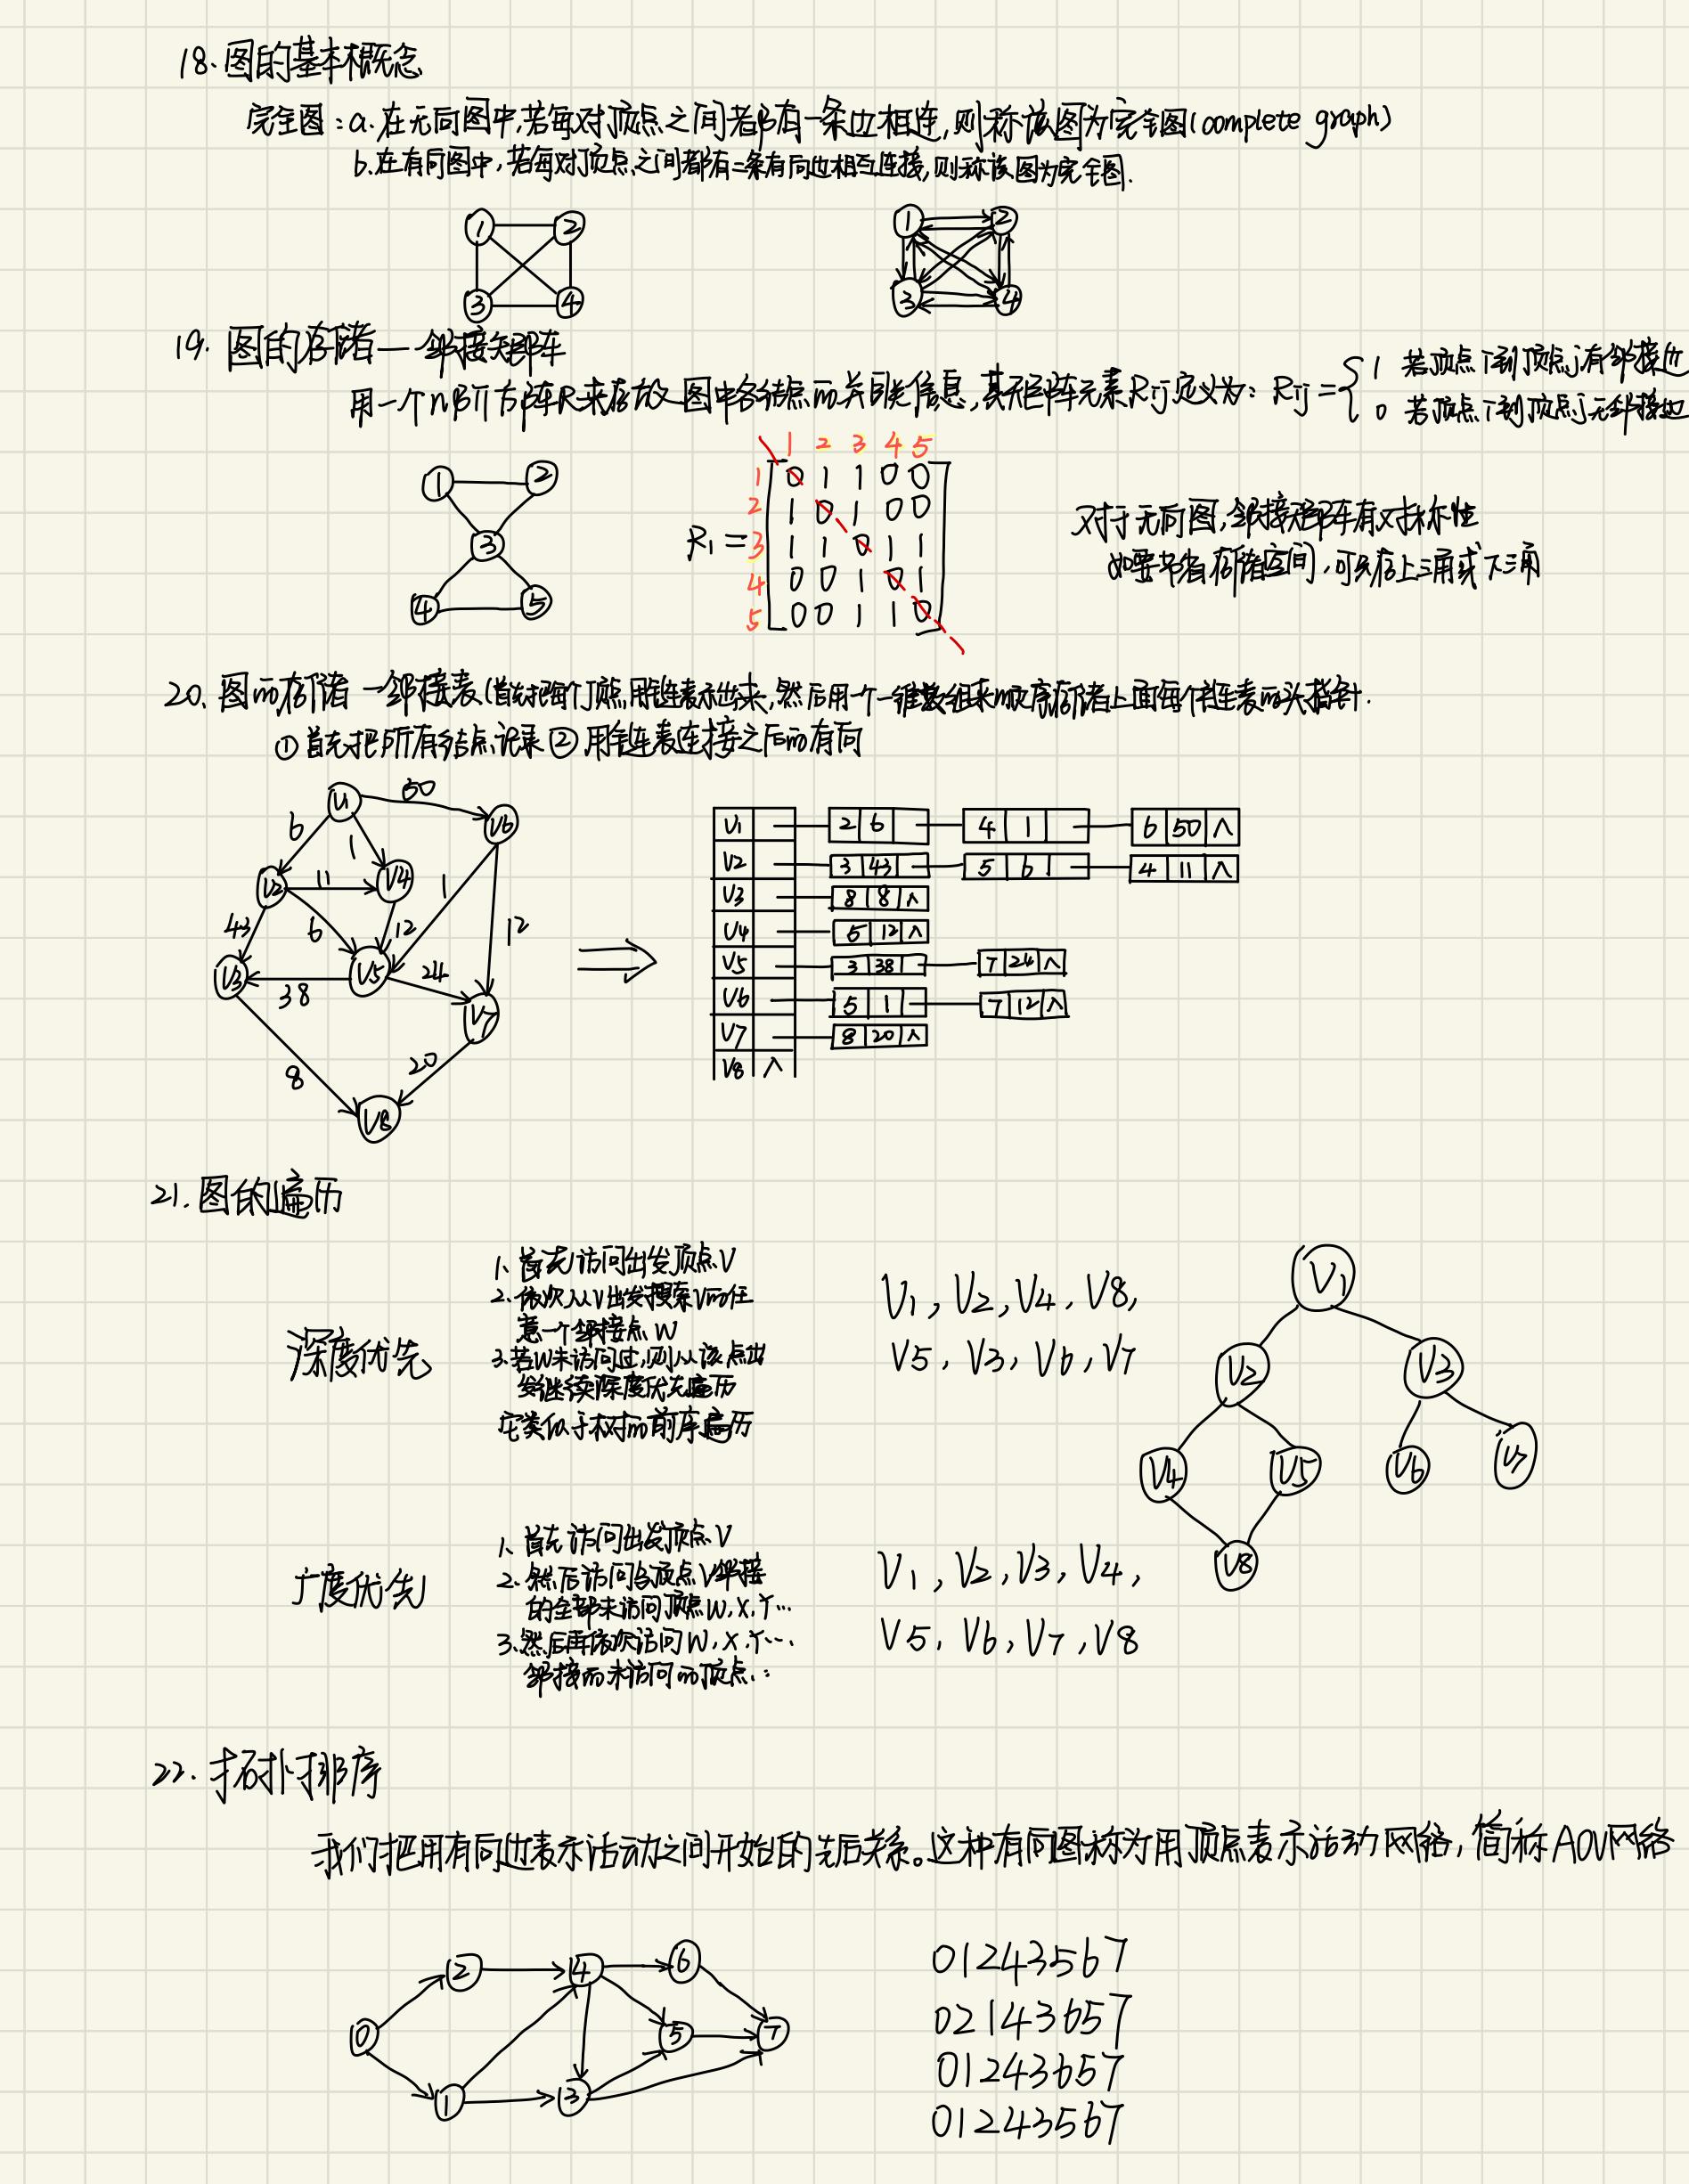 18. 图的基本概念
完全图：a. 在无向图中,若每对顶点之间都有一条边相连,则称该图为完全图(complete graph)
b.在有向图中,若每对顶点之间都有二条有向边相互连接,则称该图为完全图.
1 2 3 4
1 2 3 4
19. 图的存储—邻接矩阵
用一个n阶方阵R来存放图中各结点的关联信息,其矩阵元素Rij定义为：Rij =
1 若顶点i到顶点j有邻接边
0 若顶点i到顶点j无邻接边
1 2 3 4 5
1 2 3 4 5
R1 =
1 0 1 1 0 0
2 1 0 1 0 0
3 1 1 0 1 1
4 0 0 1 0 1
5 0 0 1 1 0
对于无向图,邻接矩阵有对称性
如要节省存储空间,可只存上三角或下三角
20. 图的存储—邻接表(首先把每个顶点用链表示出来,然后用个一维数组来顺序存储上面每个链表的头指针.
① 首先把所有结点记录 ② 用链表连接之后的有向
V1 50 V6
6 1
V2 11 V4 1
43 6 12 12
V3 38 V5 24 V7
8 20
V8
V1 2 6 4 1 6 50 ∧
V2 3 43 5 6 4 11 ∧
V3 8 8 ∧
V4 5 12 ∧
V5 3 38 7 24 ∧
V6 5 1 7 12 ∧
V7 8 20 ∧
V8 ∧
21. 图的遍历
深度优先
1、首先访问出发顶点V
2、依次从V出发搜索V的任
意一个邻接点W
3.若W未访问过,则从该点出
发继续深度优先遍历
它类似于树的前序遍历
V1, V2, V4, V8,
V5, V3, V6, V7
V1
V2 V3
V4 V5 V6 V7
V8
广度优先
1、首先访问出发顶点V
2、然后访问与顶点V邻接
的全部未访问顶点W,X,Y…
3.然后再依次访问W,X,Y…
邻接的未访问的顶点.
V1, V2, V3, V4,
V5, V6, V7, V8
22. 拓扑排序
我们把用有向边表示活动之间开始的先后关系。这种有向图称为用顶点表示活动网络,简称AOV网络
2 4 6
0 5 7
1 3
01243567
02143657
01243657
01243567